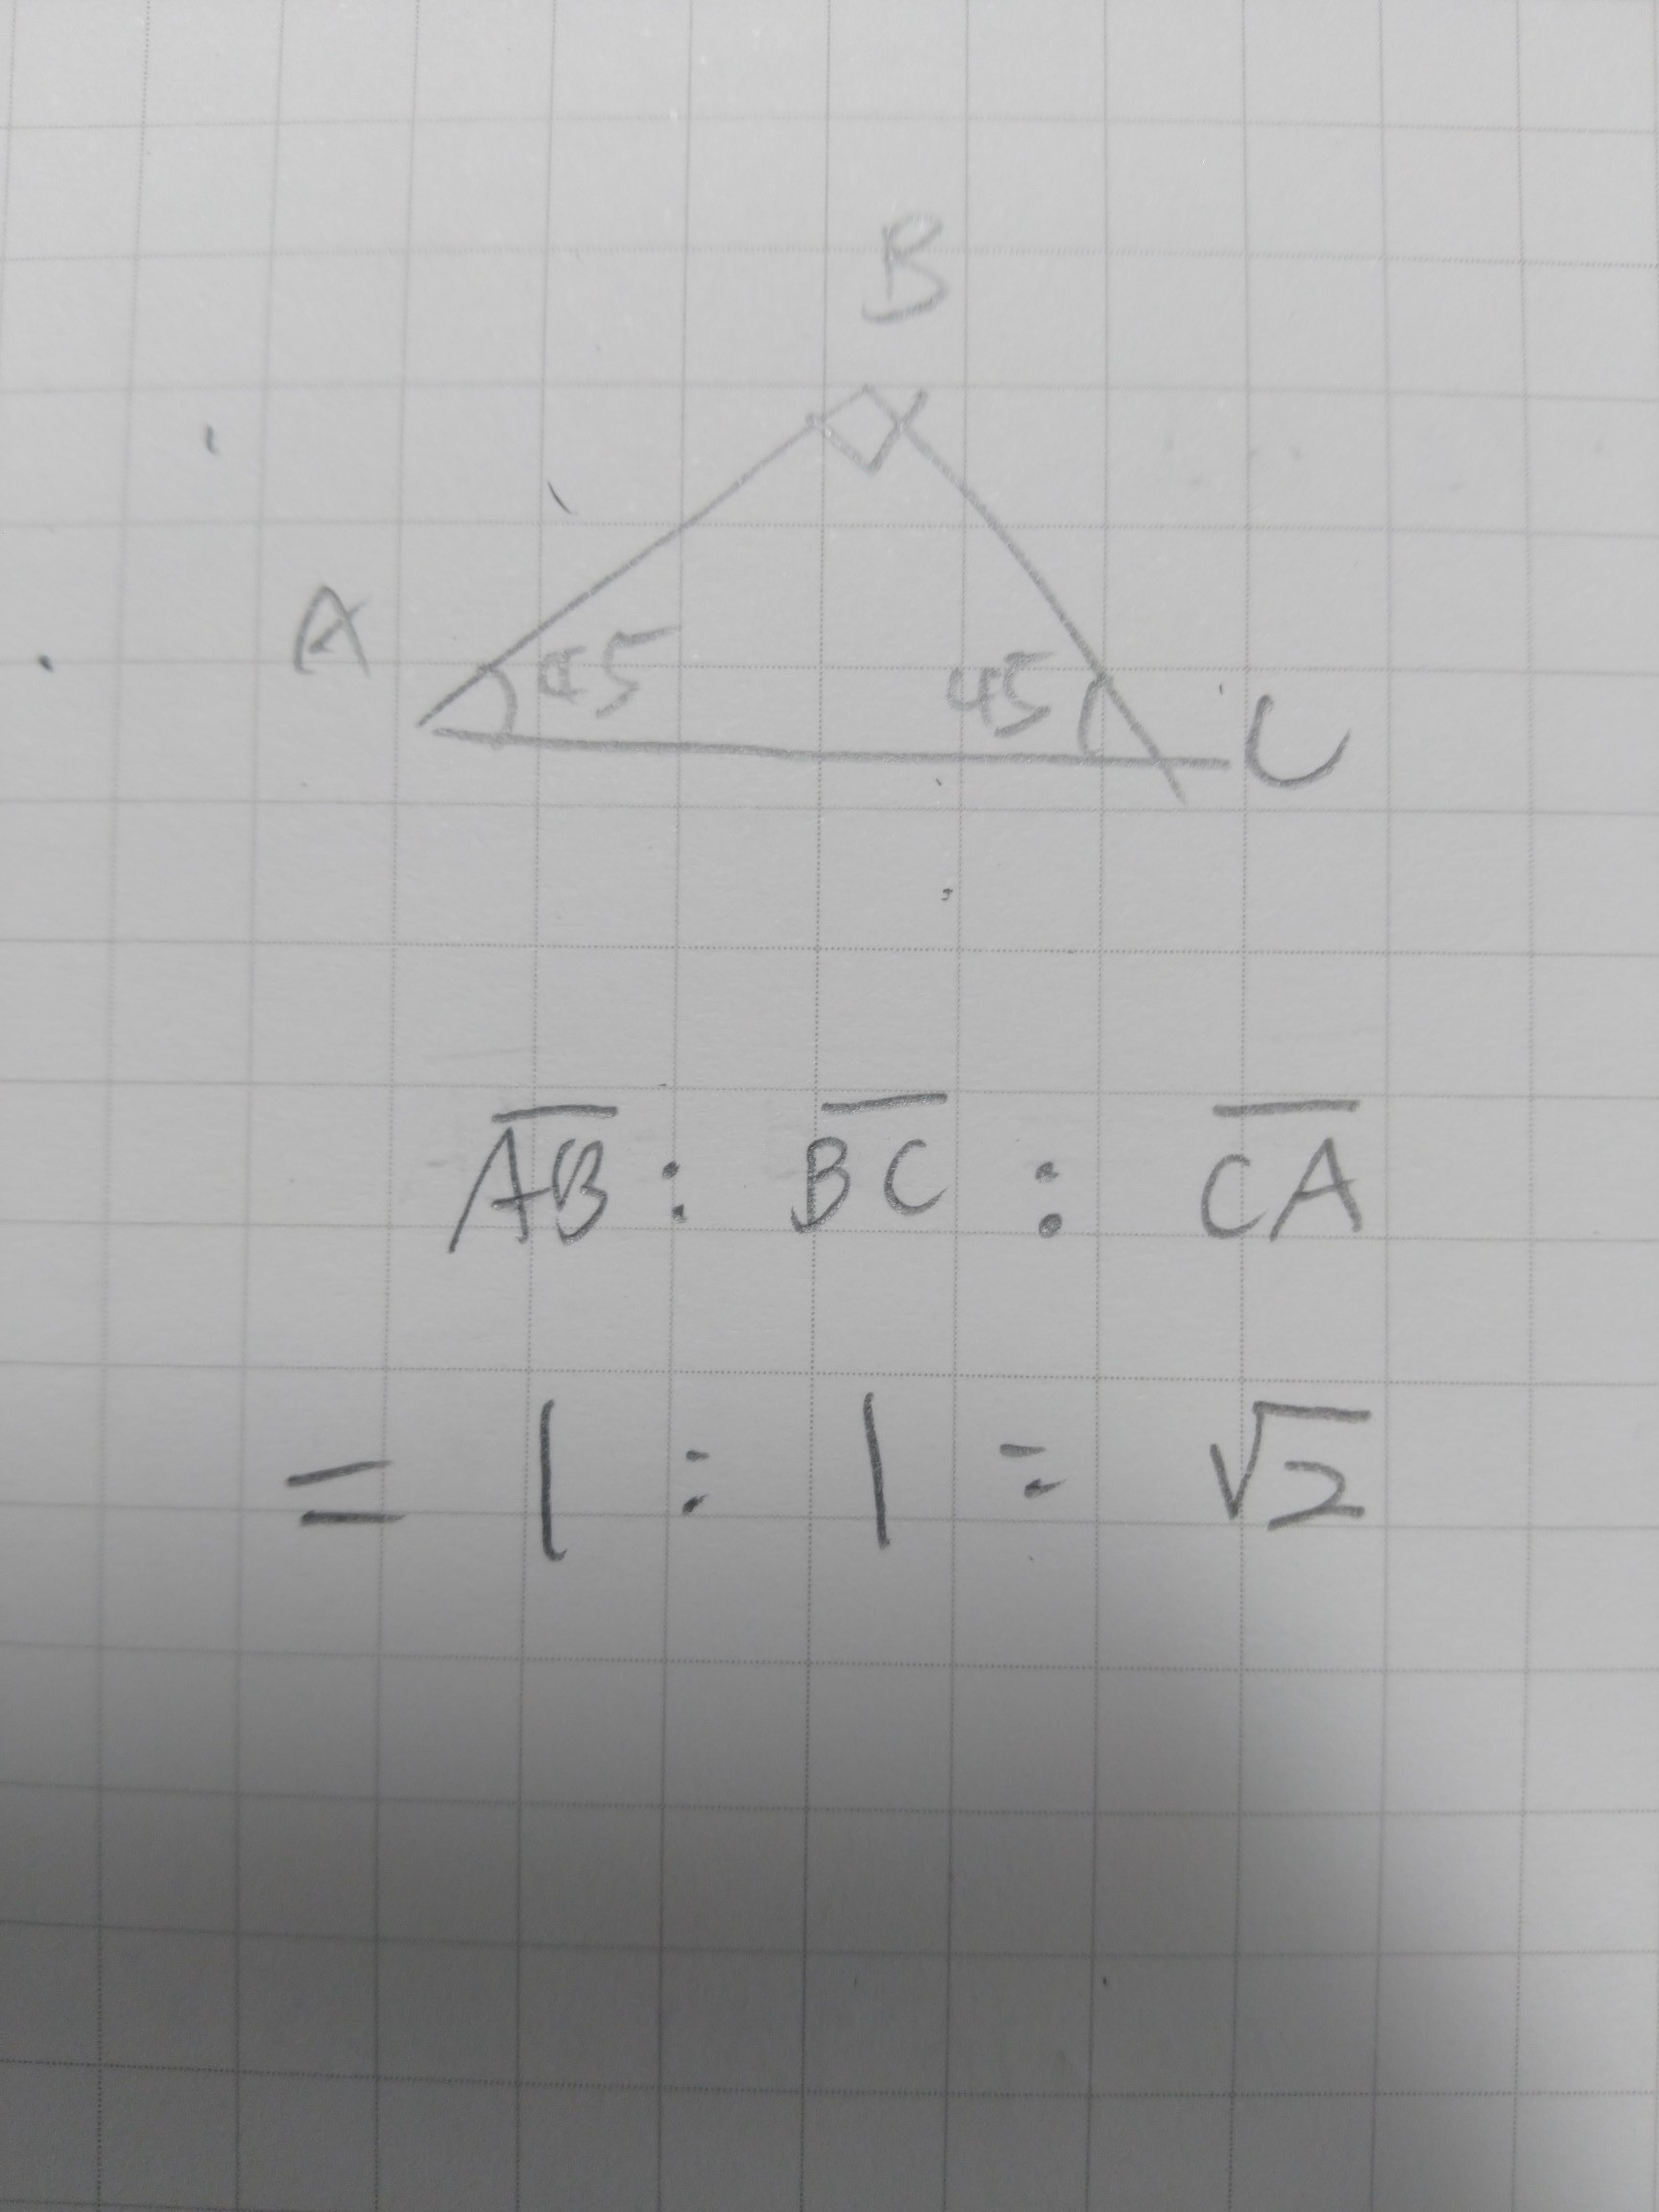 B
A
45 45 C
AB : BC : CA
= 1 : 1 : √2